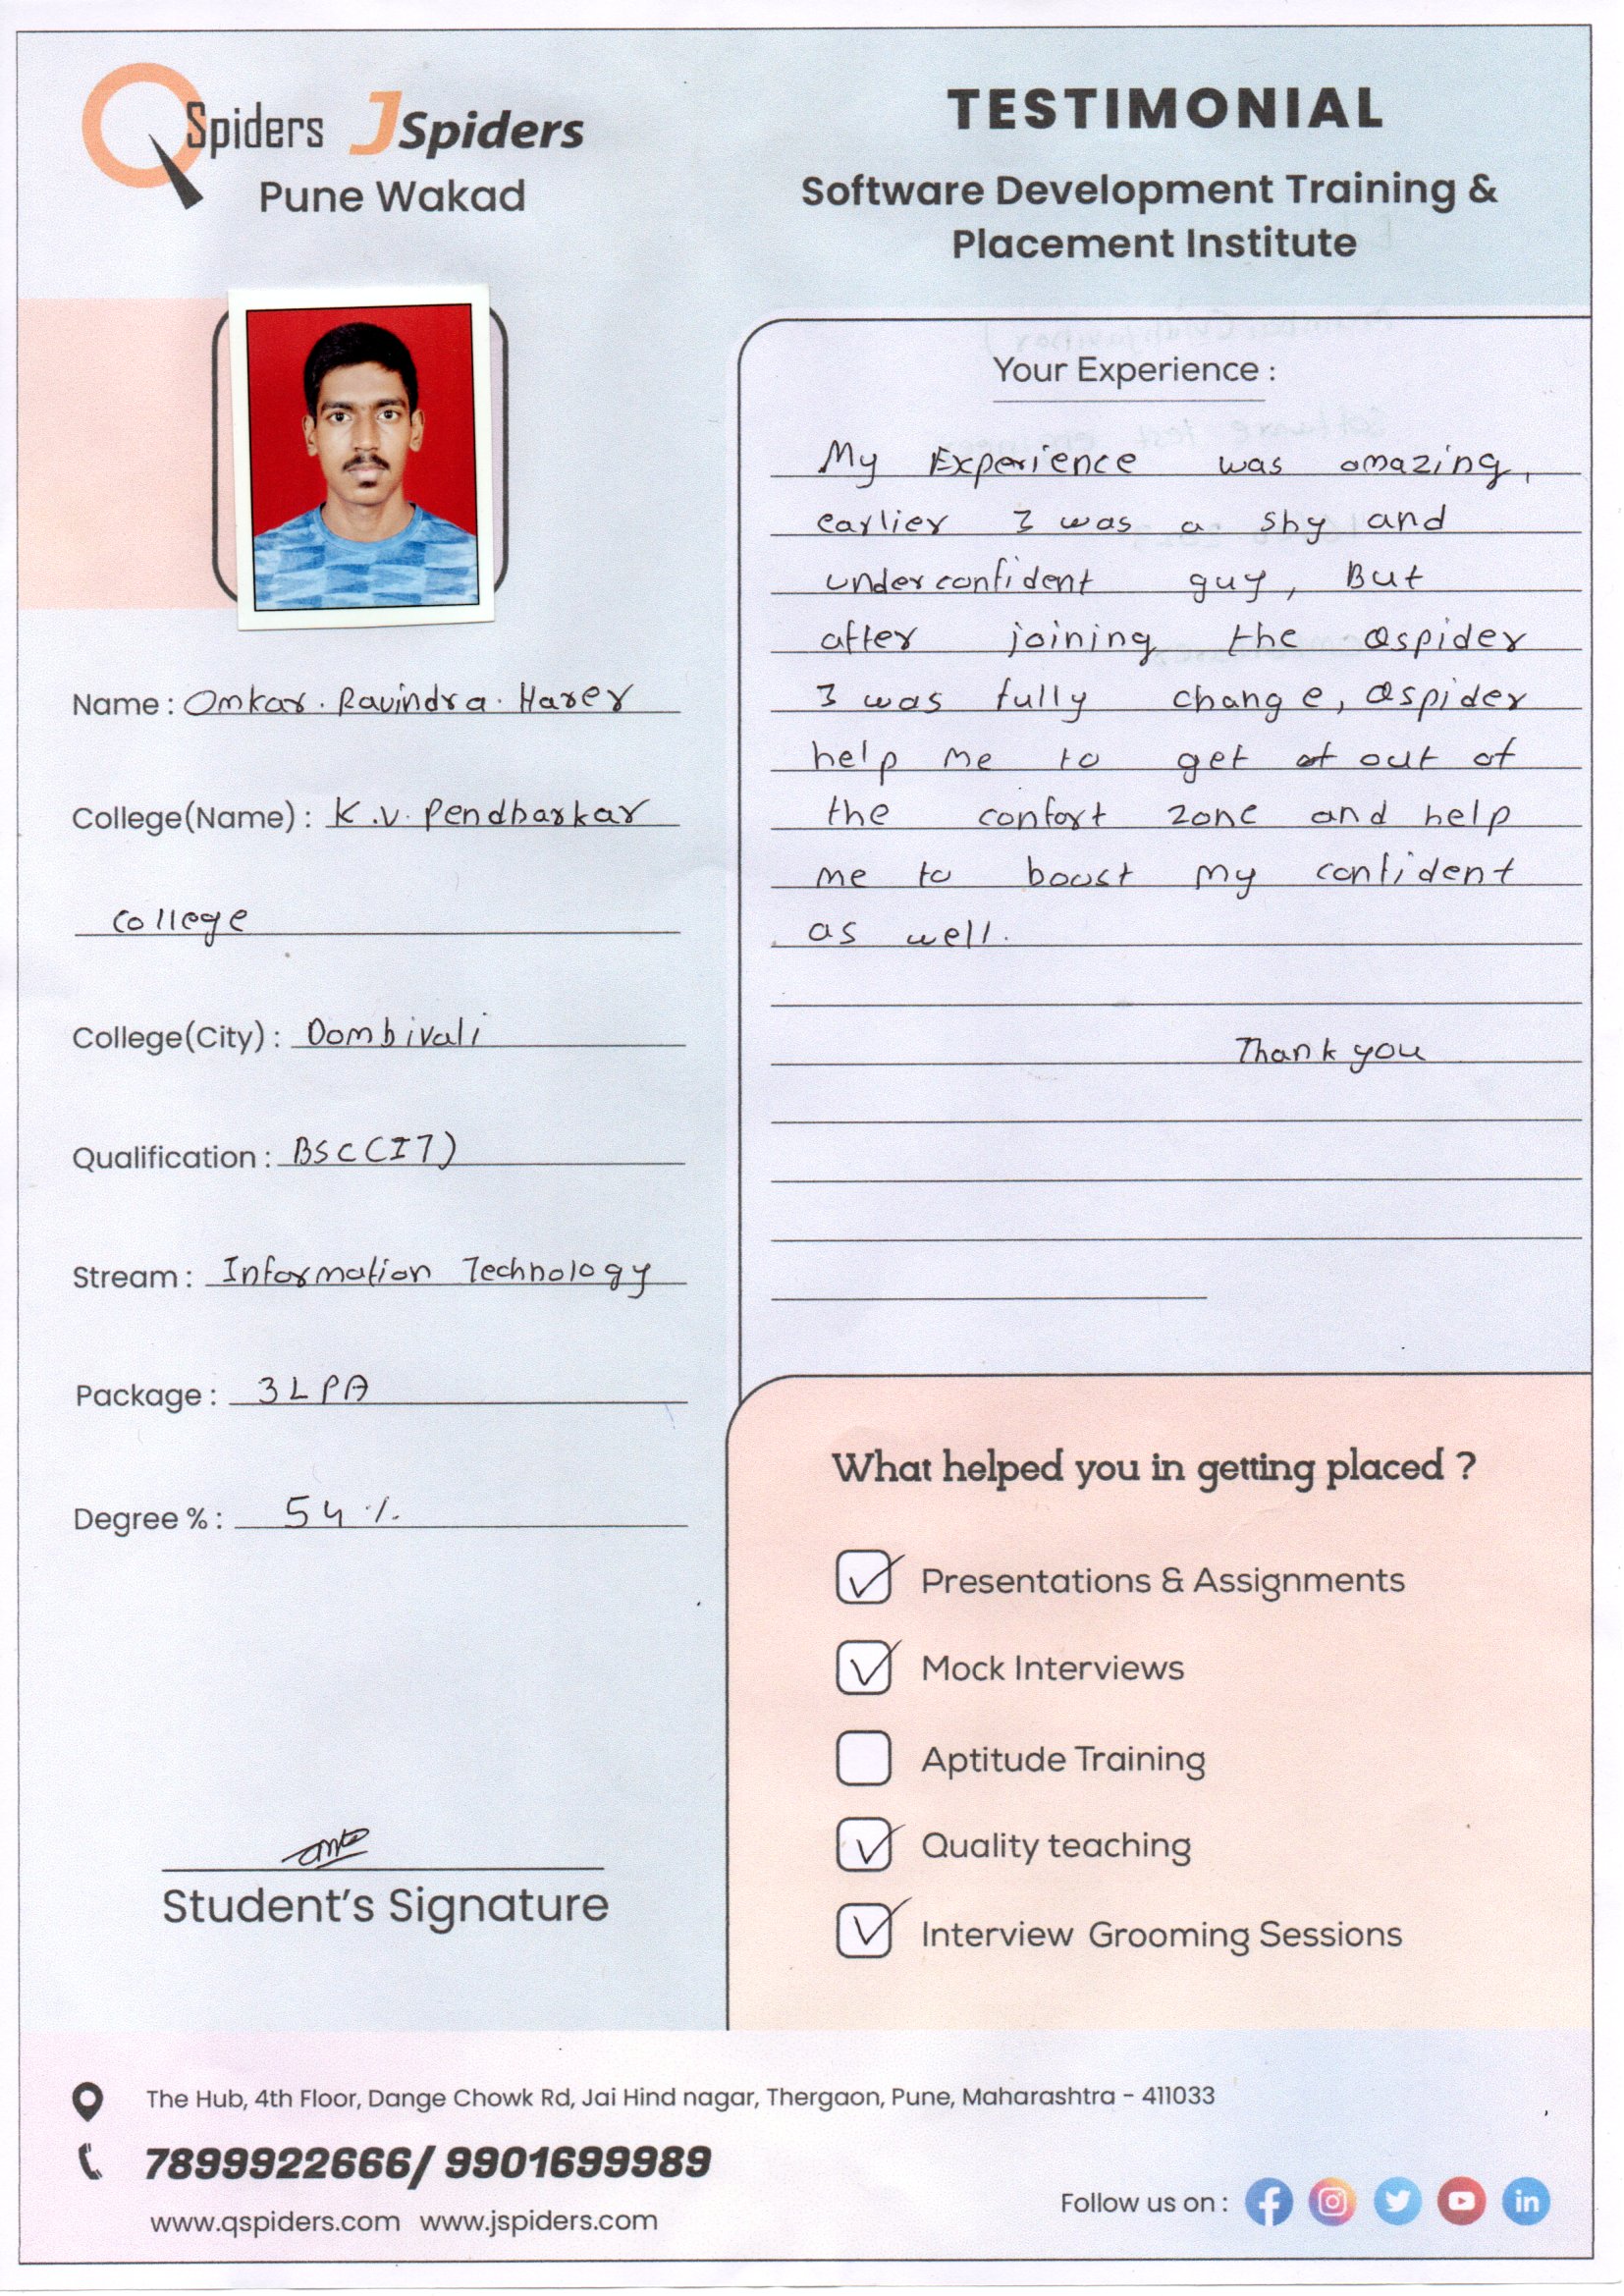 QSpiders JSpiders
Pune Wakad
TESTIMONIAL
Software Development Training &
Placement Institute
Name : Omkar . Ravindra . Harer
College(Name) : K.V. Pendharkar
college
College(City) : Dombivali
Qualification : BSC (IT)
Stream : Information Technology
Package : 3 L PA
Degree % : 54 %
Student's Signature
Your Experience :
My Experience was amazing,
earlier I was a shy and
underconfident guy, But
after joining the Qspider
I was fully change, Qspider
help me to get out of
the confort zone and help
me to boost my confident
as well.
Thank you
What helped you in getting placed ?
Presentations & Assignments
Mock Interviews
Aptitude Training
Quality teaching
Interview Grooming Sessions
The Hub, 4th Floor, Dange Chowk Rd, Jai Hind nagar, Thergaon, Pune, Maharashtra - 411033
7899922666/ 9901699989
www.qspiders.com www.jspiders.com
Follow us on :